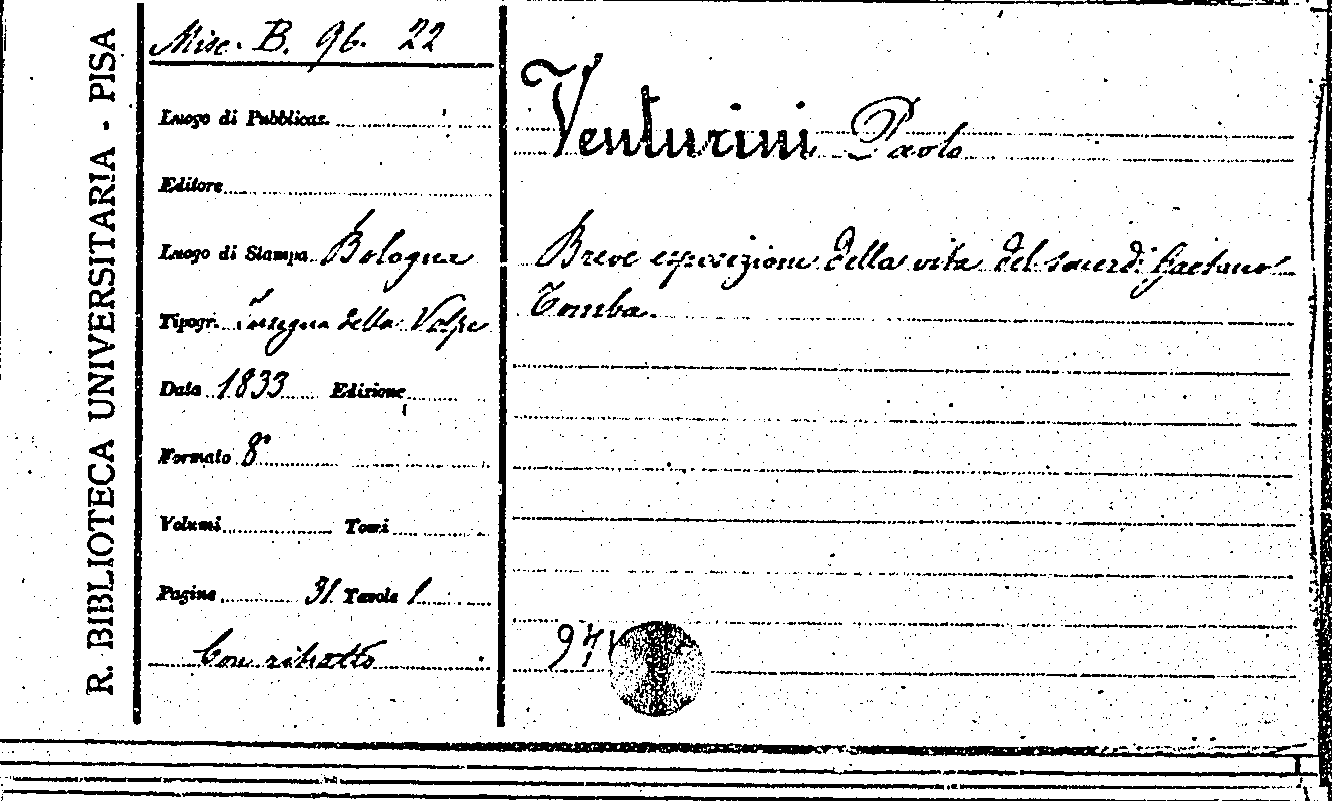 R. BIBLIOTECA UNIVERSITARIA - PISA
Misc. B. 96. 22
Luogo di Pubblicaz.
Editore
Luogo di Stampa Bologna
Tipogr. Insegna della Volpe
Data 1833 Edizione
Formato 8°
Volumi Tomi
Pagine 31 Tavole 1
Con ritratto
Venturini Paolo
Breve esposizione della vita del sacerd. Gaetano
Tomba.